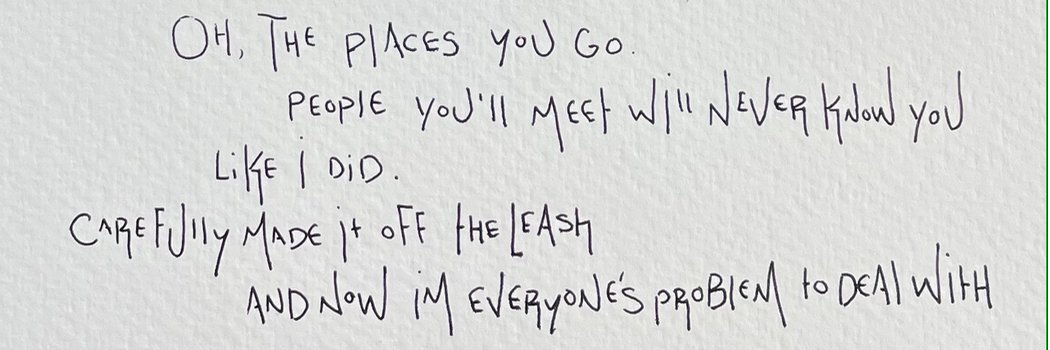 OH, THE PLACES YOU GO.
PEOPlE YOU'll MEEt Will NEVER KNOW YOU
LiKE i DiD.
CAREFUlly MADE it OFF tHE LEASH
AND NOW iM EVERYONE'S PROBlEM to DEAl WitH